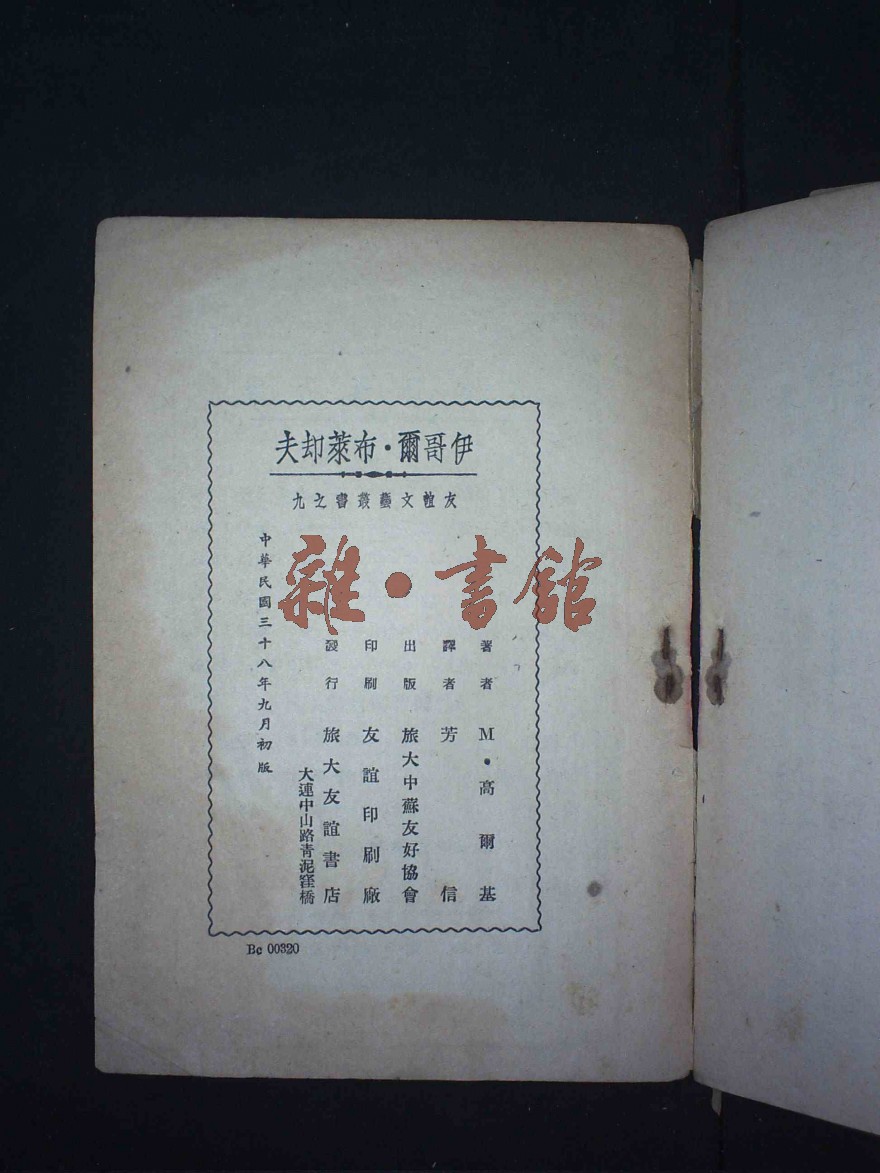 伊哥爾·布萊却夫
友誼文藝叢書之九
雜·書館
著者 M·高爾基
譯者 芳信
出版 旅大中蘇友好協會
印刷 友誼印刷廠
發行 旅大友誼書店
大連中山路青泥窪橋
中華民國三十八年九月初版
Bc 00320